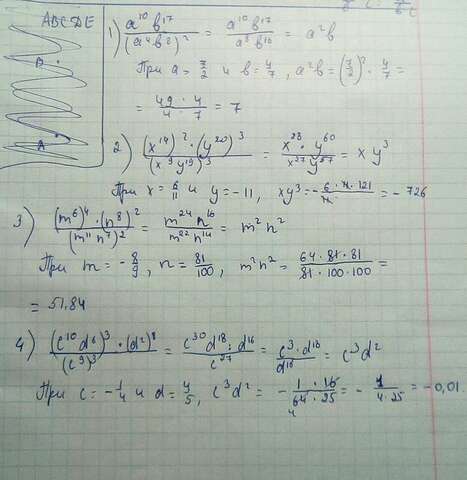 ABCDE
B
A
1) a^10 b^17 / (a^4 b^8)^2 = a^10 b^17 / a^8 b^16 = a^2 b
При a = 7/2 и b = 4/7, a^2 b = (7/2)^2 · 4/7 =
= 49 · 4 / 4 · 7 = 7
2) (x^14)^2 · (y^20)^3 / (x^9 y^19)^3 = x^28 · y^60 / x^27 y^57 = x y^3
При x = 6/11 и y = -11, xy^3 = - 6 · 11 · 121 / 11 = - 726
3) (m^6)^4 · (n^8)^2 / (m^11 n^7)^2 = m^24 n^16 / m^22 n^14 = m^2 n^2
При m = - 8/9, n = 81/100, m^2 n^2 = 64 · 81 · 81 / 81 · 100 · 100 =
= 51.84
4) (c^10 d^6)^3 · (d^2)^8 / (c^9)^3 = c^30 d^18 : d^16 / c^27 = c^3 · d^18 / d^16 = c^3 d^2
При c = - 1/4 и d = 4/5, c^3 d^2 = - 1 · 16 / 64 · 25 = - 1 / 4 · 25 = -0,01